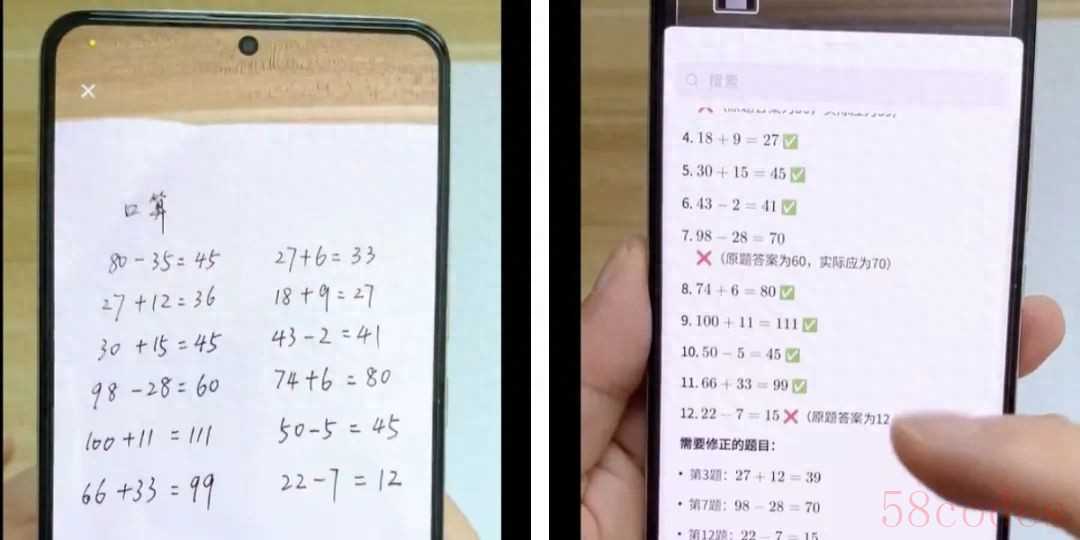 口算
80-35=45 27+6=33
27+12=36 18+9=27
30+15=45 43-2=41
98-28=60 74+6=80
100+11=111 50-5=45
66+33=99 22-7=12
搜索
4. 18 + 9 = 27 ✅
5. 30 + 15 = 45 ✅
6. 43 − 2 = 41 ✅
7. 98 − 28 = 70
❌（原题答案为60，实际应为70）
8. 74 + 6 = 80 ✅
9. 100 + 11 = 111 ✅
10. 50 − 5 = 45 ✅
11. 66 + 33 = 99 ✅
12. 22 − 7 = 15 ❌（原题答案为12
需要修正的题目：
• 第3题：27 + 12 = 39
• 第7题：98 − 28 = 70
• 第12题：22 − 7 = 15
58codes